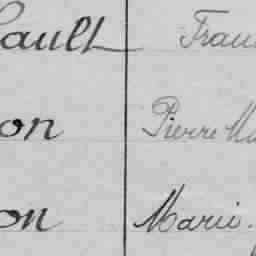 ault Fran
on Pierre Ma
on Marie